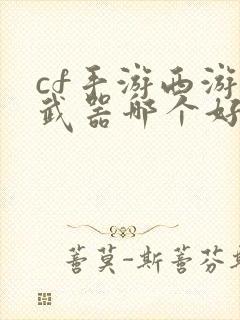 cf手游西游
武器哪个好
蓍莫-斯蓍芬斯